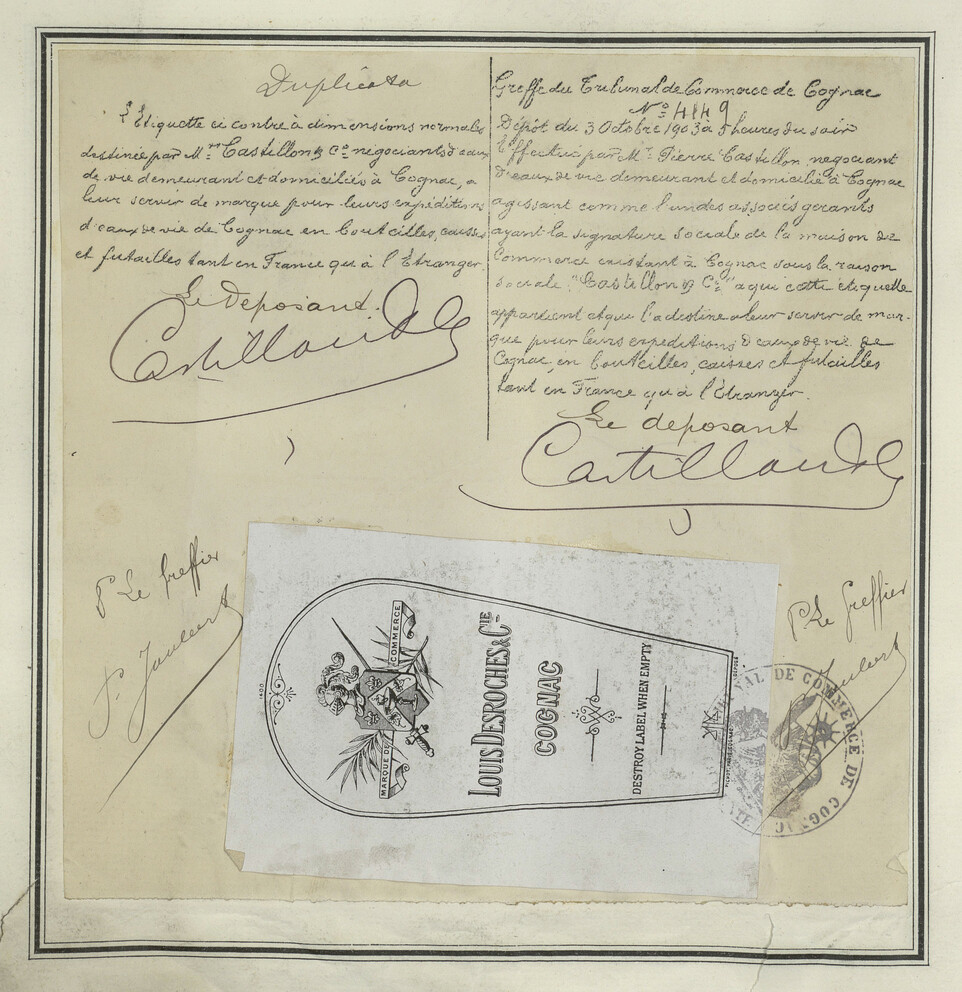 Duplicata
L'Etiquette ci contre à dimensions normales
destinée par M.rs Castillon & Co négociants d'eaux
de vie demeurant et domiciliés à Cognac, a
leur servir de marque pour leurs expéditions
d'eaux de vie de Cognac en bouteilles, caisses
et futailles tant en France qu'à l'Etranger.
Le deposant.
Greffe du Tribunal de Commerce de Cognac
No 4149
Dépôt du 3 Octobre 1903 à 5 heures du soir
Effectué par Mr. Pierre Castillon, négociant
d'eaux de vie demeurant et domicilié à Cognac
agissant comme l'un des associés gerants
ayant la signature sociale de la maison de
Commerce existant à Cognac sous la raison
sociale "Castillon & Co" a qui cette étiquette
appartient et qui l'a destine a leur servir de mar-
que pour leurs expéditions d'eaux de vie de
Cognac, en bouteilles, caisses et futailles
tant en France qu'à l'Etranger.
Le deposant
P. Le Greffier
P. Le Greffier
1400
MARQUE DE COMMERCE
LOUIS DESROCHES & CIE
COGNAC
DESTROY LABEL WHEN EMPTY
TRIBUNAL DE COMMERCE DE COGNAC